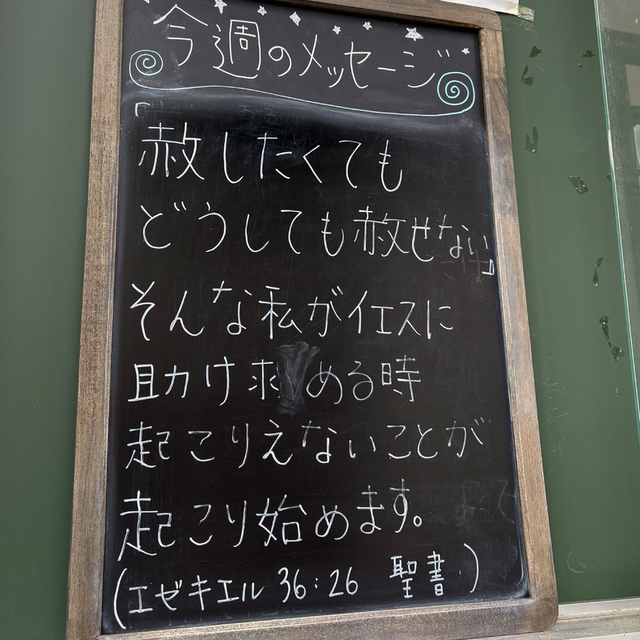 今週のメッセージ
「赦したくても
どうしても赦せない」
そんな私がイエスに
助け求める時
起こりえないことが
起こり始めます。
(エゼキエル 36:26 聖書)